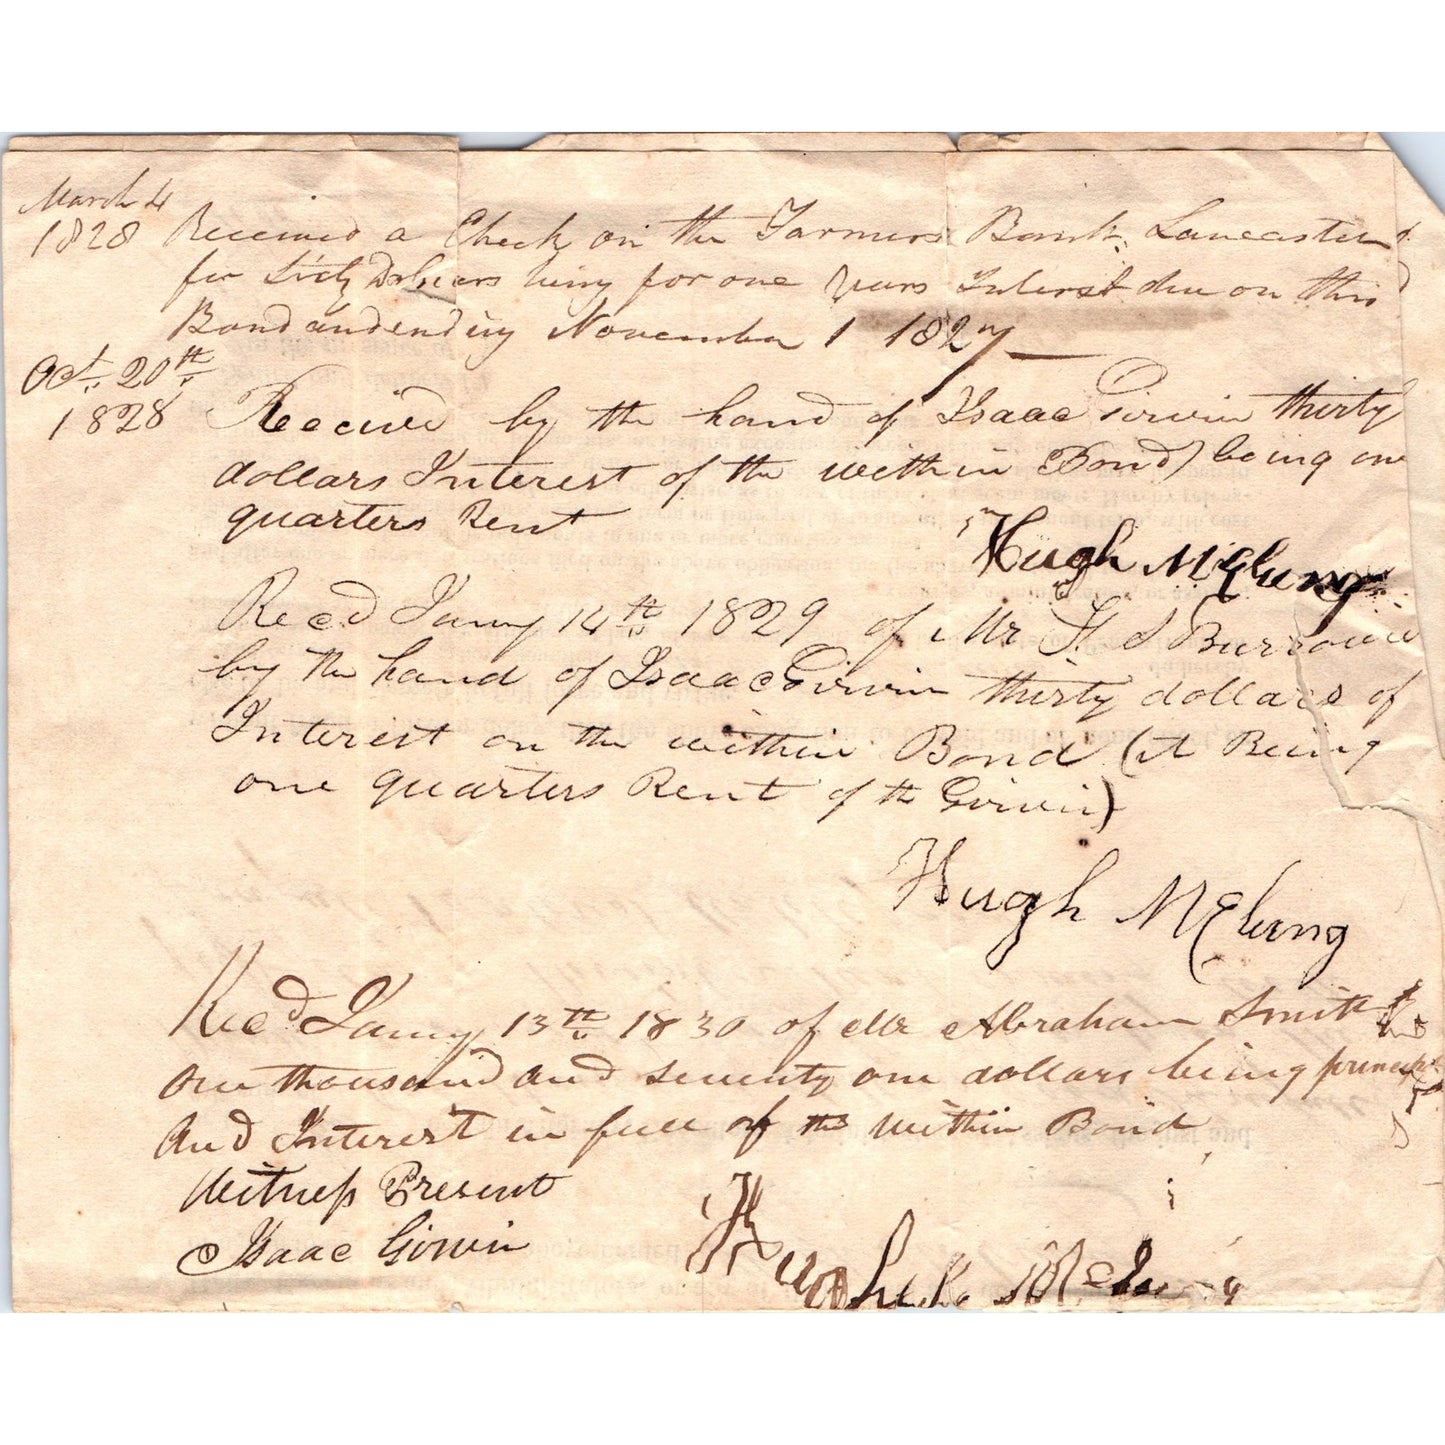 March 4
1828 Received a Check on the Farmers Bank Lancaster
for Sixty Dollars being for one years Interest due on this
Bond and ending November 1 1827
Oct. 20th
1828 Received by the hand of Isaac Girvin thirty
dollars Interest of the within Bond) being one
quarters Rent
Hugh McClung
Recd Jamy 14th 1829 of Mr S Burrows
by the hand of Isaac Girvin thirty dollars of
Interest on the within Bond (it Being
one quarters Rent of th Girvin)
Hugh McClung
Recd Jamy 13th 1830 of Mr Abraham Smith
one thousand and seventy one dollars being princip
and Interest in full of the within Bond
Witness Present
Isaac Girvin
Hugh McClung